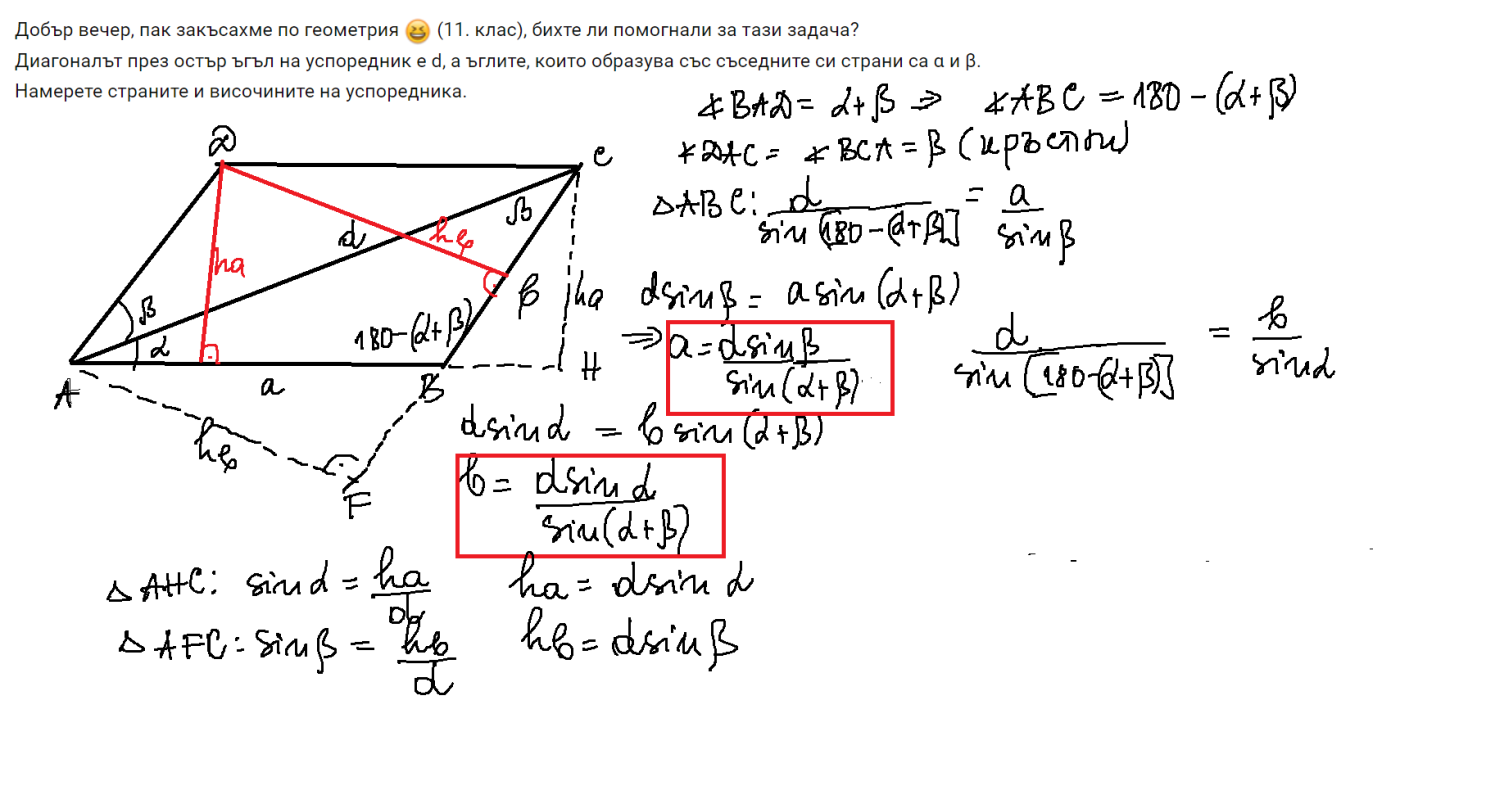 Добър вечер, пак закъсахме по геометрия 😆 (11. клас), бихте ли помогнали за тази задача?
Диагоналът през остър ъгъл на успоредник е d, а ъглите, които образува със съседните си страни са α и β.
Намерете страните и височините на успоредника.
∢BAD = α+β ⇒ ∢ABC = 180-(α+β)
∢DAC = ∢BCA = β (кръстни)
△ABC: d/sin[180-(α+β)] = a/sinβ
d sinβ = a sin(α+β)
⇒ a = d sinβ/sin(α+β)
d/sin[180-(α+β)] = b/sinα
d sinα = b sin(α+β)
b = d sinα/sin(α+β)
△AHC: sinα = ha/d
ha = d sinα
△AFC: sinβ = hb/d
hb = d sinβ
D
C
β
d
hb
ha
β
α
180-(α+β)
b
ha
A
a
B
H
hb
F